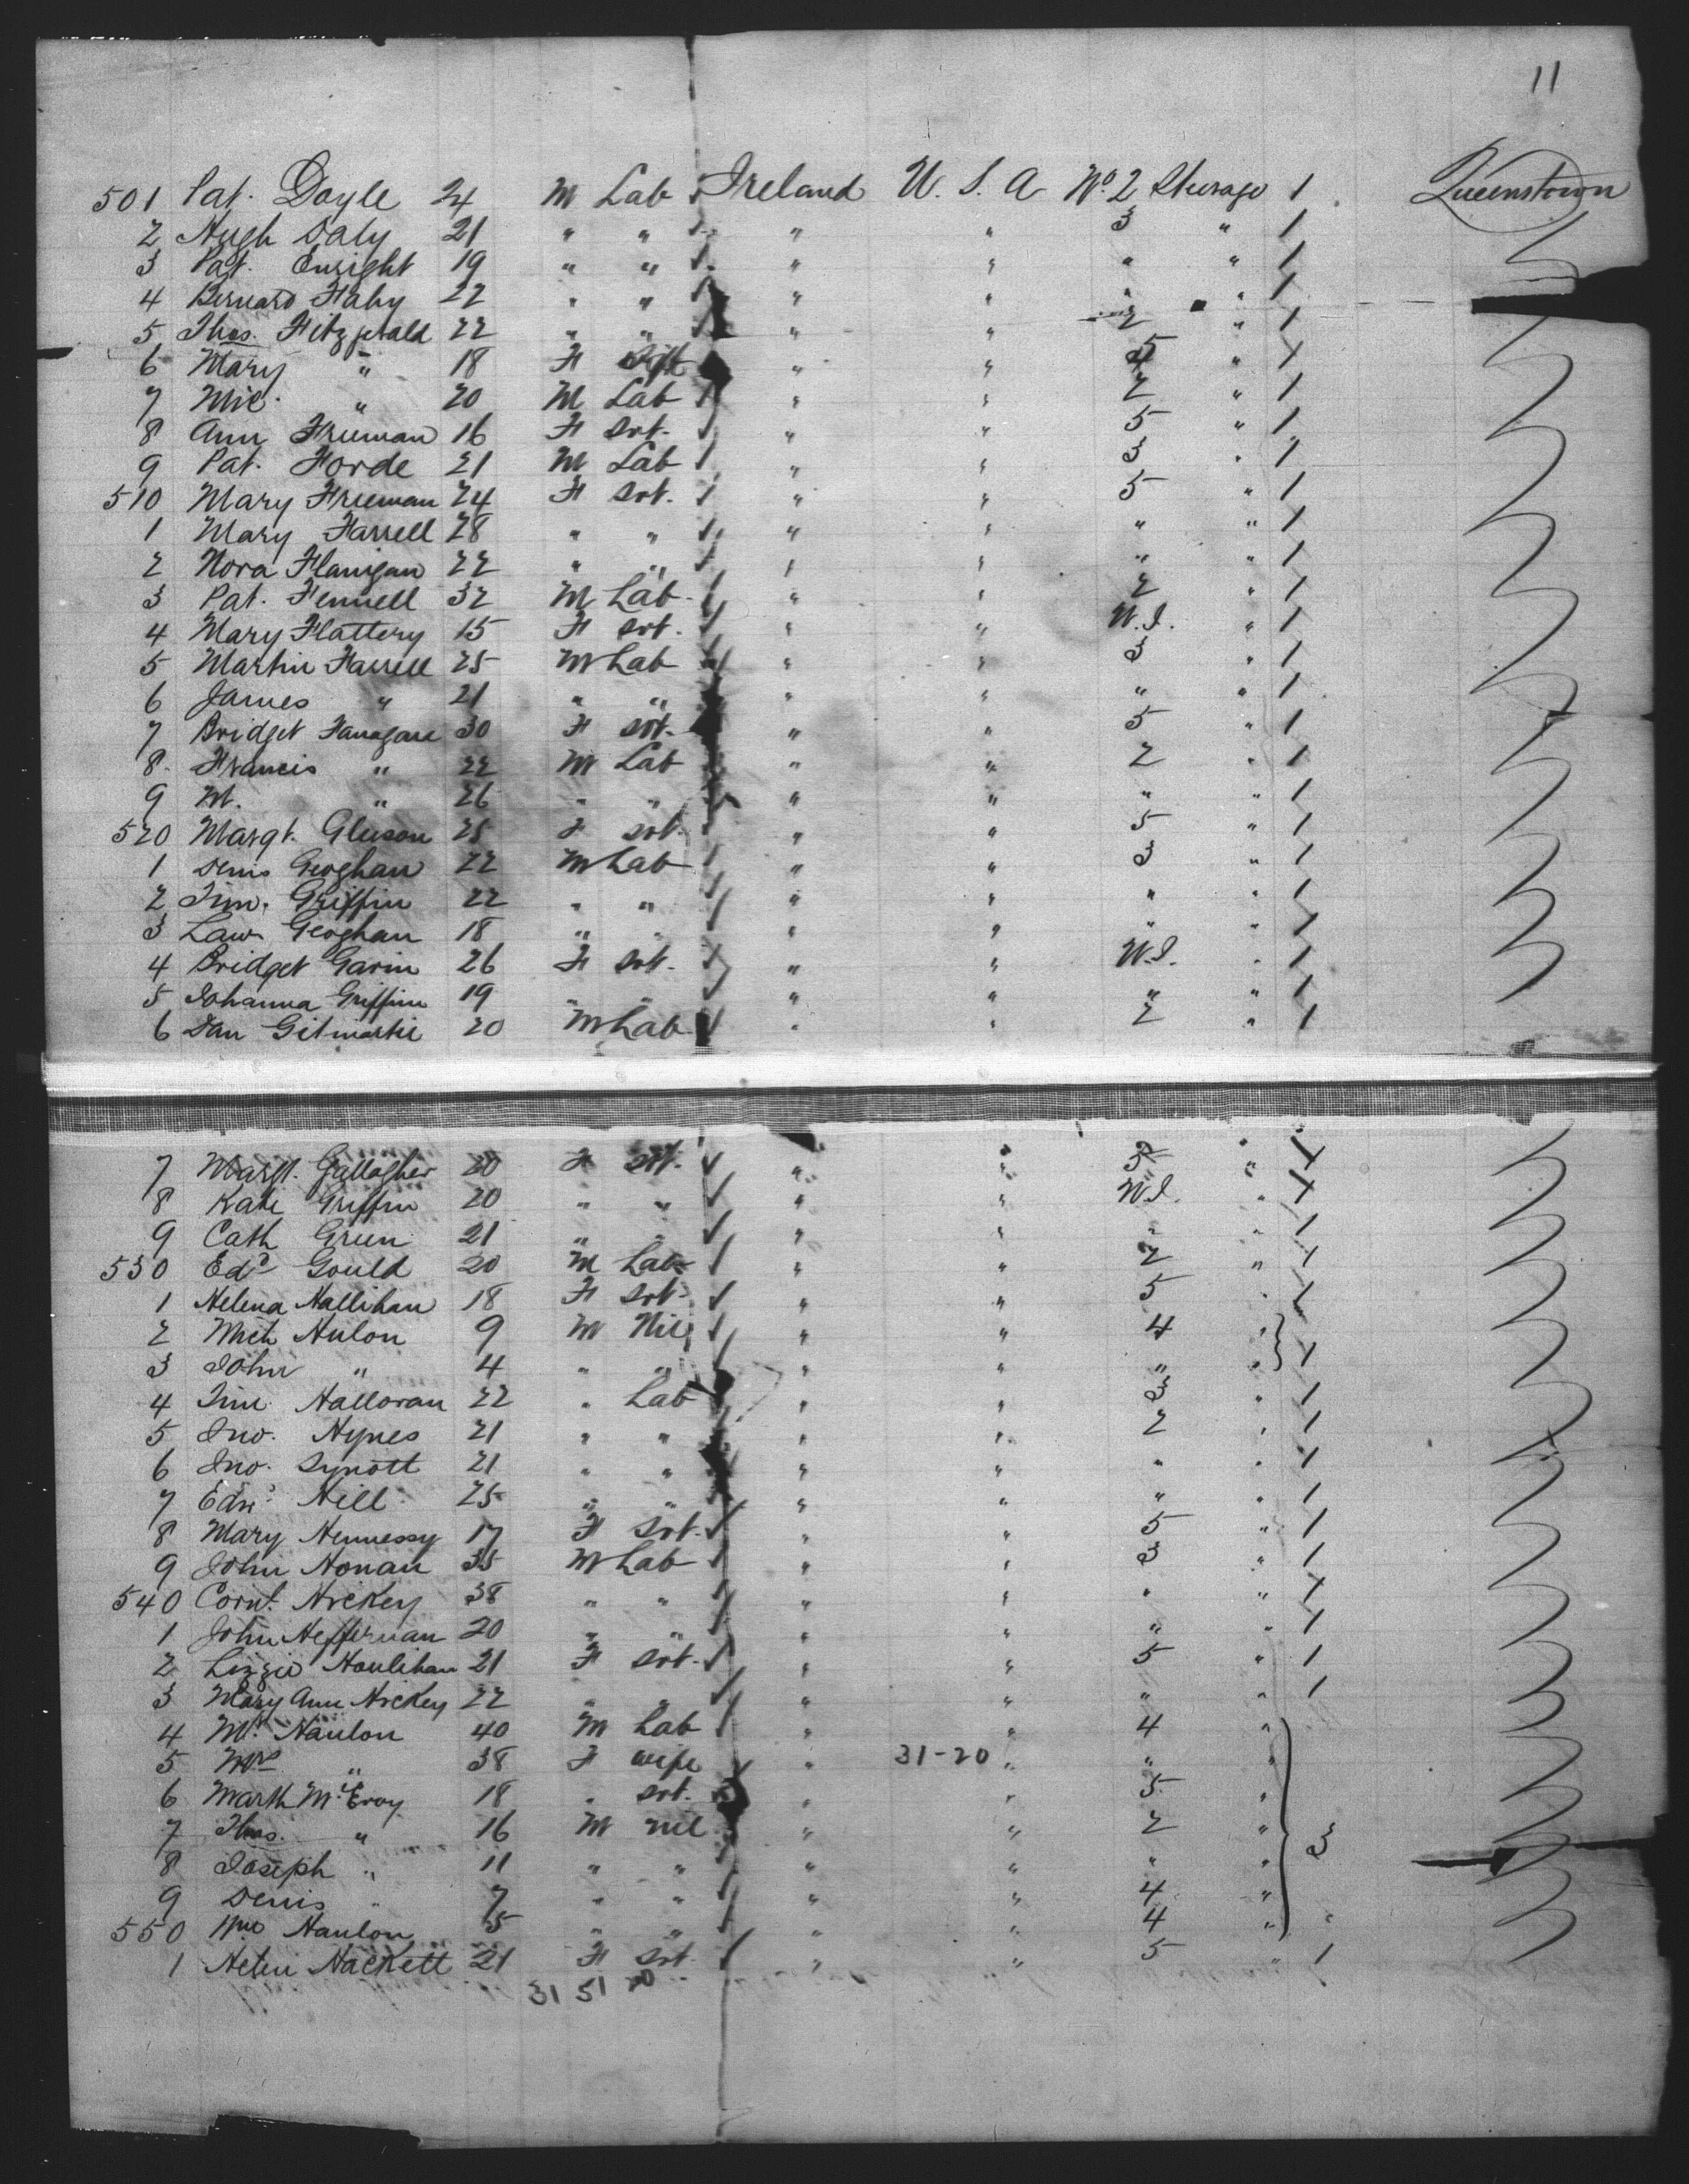 11
501 Pat. Doyle 24 M Lab Ireland U.S.A No. 2 Sterage 1 Queenstown
2 Hugh Daly 21 " " " " 3 " 1
3 Pat. Enright 19 " " " " " " 1
4 Bernard Fahy 22 " " " " " " 1
5 Thos. Fitzgerald 22 " " " " 2 " 1
6 Mary " 18 F " " 5 " 1
7 Mic. " 20 M Lab " " 2 " 1
8 Ann Freeman 16 F Svt. " " 5 " 1
9 Pat. Forde 21 M Lab " " 3 " 1
510 Mary Freeman 24 F Svt. " " 5 " 1
1 Mary Farrell 28 " " " " " " 1
2 Nora Flanigan 22 " " " " " " 1
3 Pat. Fennell 32 M Lab " " 2 " 1
4 Mary Flattery 15 F Svt. " " W.I. " 1
5 Martin Farrell 25 M Lab " " 3 " 1
6 James " 21 " " " " " " 1
7 Bridget 30 F Svt. " " 5 " 1
8 Francis " 22 M Lab " " 2 " 1
9 M. " 26 " " " " " " 1
520 Margt. Gleeson 25 F Svt. " " 5 " 1
1 Denis Geoghan 22 M Lab " " 3 " 1
2 Tim. Griffin 22 " " " " " " 1
3 Law. Geoghan 18 " " " " " " 1
4 Bridget Garin 26 F Svt. " " W.I. " 1
5 Johanna Griffin 19 " " " " " " 1
6 Dan 20 M Lab " " 2 " 1
7 Margt. Gallagher 20 F Svt. " " 5 " 1
8 Kate Griffin 20 " " " " W.I. " 1
9 Cath Green 21 " " " " " " 1
530 Edd Gould 20 M Lab " " 2 " 1
1 Helena Hallihan 18 F Svt. " " 5 " 1
2 Mich Hulon 9 M Nil " " 4 "
3 John " 4 " " " " " " } 1
4 Tim Halloran 22 " Lab " " 3 " 1
5 Jno. Hynes 21 " " " " 2 " 1
6 Jno. Synott 21 " " " " " " 1
7 Edwd Hill 25 " " " " " " 1
8 Mary Hennessy 17 F Svt. " " 5 " 1
9 John Honan 35 M Lab " " 3 " 1
540 Cornl. Hickey 38 " " " " " " 1
1 John Heffernan 20 " " " " " " 1
2 Lizzie Houlihan 21 F Svt. " " 5 " 1
3 Mary Ann Hickey 22 " " " " " " 1
4 Mr. Hanlon 40 M Lab " " 4 "
5 Mrs " 38 F wife " 31-20 " " "
6 Marth McEvoy 18 " Svt. " " 5 "
7 Thos. " 16 M nil " " 2 " } 3
8 Joseph " 11 " " " " " "
9 Denis " 7 " " " " 4 "
550 Hanlon 5 " " " " 4 "
1 Helen Hackett 21 F Svt. " " 5 " 1
31 51 20